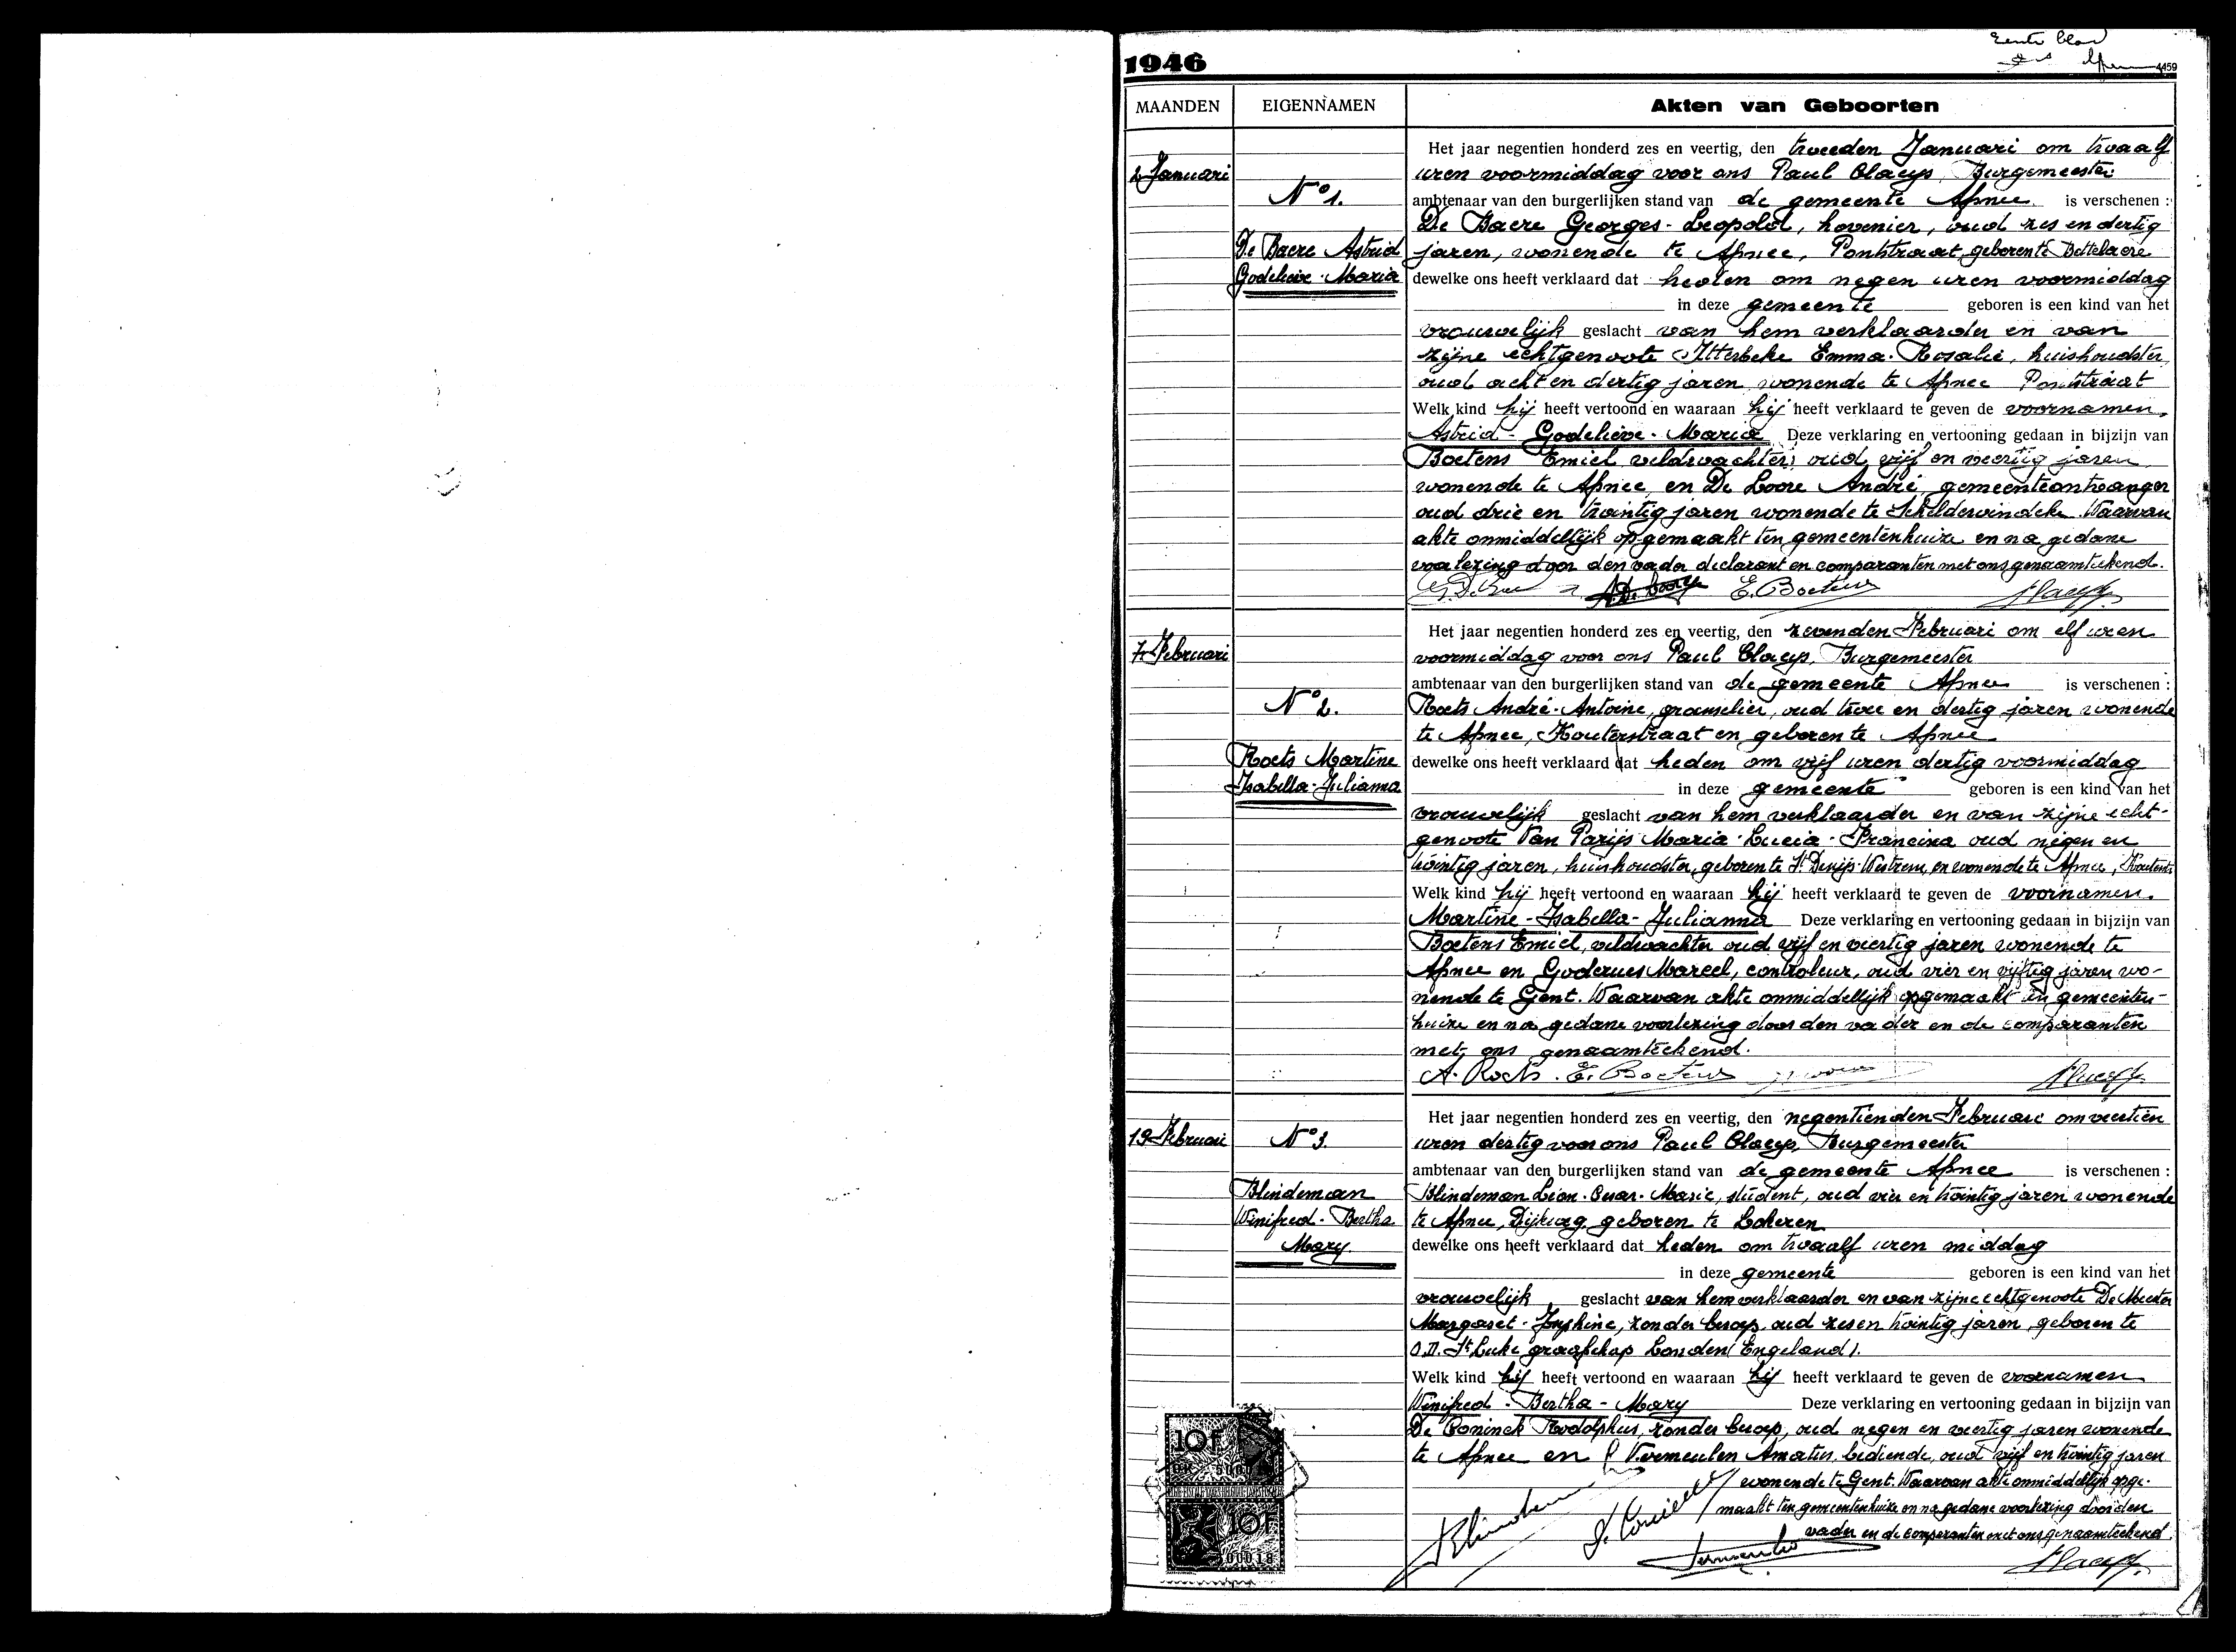 Eerste blad
4459
1946
MAANDEN
EIGENNAMEN
Akten van Geboorten
2 Januari
N° 1.
De Baere Astrid
Godelieve-Maria
Het jaar negentien honderd zes en veertig, den tweeden Januari om twaalf
uren voormiddag voor ons Paul Claeys, Burgemeester
ambtenaar van den burgerlijken stand van de gemeente Afsnee is verschenen :
De Baere Georges-Leopold, hovenier, oud zes en dertig
jaren, wonende te Afsnee, Pontstraat, geboren te
dewelke ons heeft verklaard dat heden om negen uren voormiddag
in deze gemeente geboren is een kind van het
vrouwelijk geslacht van hem verklaarder en van
zijne echtgenoote Itterbeke Emma-Rosalie, huishoudster,
oud acht en dertig jaren, wonende te Afsnee Pontstraat
Welk kind hij heeft vertoond en waaraan hij heeft verklaard te geven de voornamen,
Astrid-Godelieve-Maria Deze verklaring en vertooning gedaan in bijzijn van
Boetens Emiel, veldwachter, oud vijf en veertig jaren
wonende te Afsnee, en De Loore André, gemeenteontvanger
oud drie en twintig jaren wonende te Scheldewindeke. Waarvan
akte onmiddellijk opgemaakt ten gemeentenhuize en na gedane
voorlezing door den vader declarant en comparanten met ons genaamteekend.
A. De Loore E. Boetens
7 Februari
N° 2.
Roets Martine
Isabella-Julianna
Het jaar negentien honderd zes en veertig, den zevenden Februari om elf uren
voormiddag voor ons Paul Claeys, Burgemeester
ambtenaar van den burgerlijken stand van de gemeente Afsnee is verschenen :
Roets André-Antoine, oud twee en dertig jaren wonende
te Afsnee, Kouterstraat en geboren te Afsnee
dewelke ons heeft verklaard dat heden om vijf uren dertig voormiddag
in deze gemeente geboren is een kind van het
vrouwelijk geslacht van hem verklaarder en van zijne echt-
genoote Van Parijs Maria-Lucia-Francina oud negen en
twintig jaren, huishoudster, geboren te St Denijs-Westrem, en wonende te Afsnee,
Welk kind hij heeft vertoond en waaraan hij heeft verklaard te geven de voornamen.
Martine-Isabella-Julianna Deze verklaring en vertooning gedaan in bijzijn van
Boetens Emiel, veldwachter oud vijf en veertig jaren wonende te
Afsnee en Marcel, controleur, oud vier en vijftig jaren wo-
nende te Gent. Waarvan akte onmiddellijk opgemaakt in gemeenten-
huize en na gedane voorlezing door den vader en de comparanten
met ons genaamteekend.
A. Roets. E. Boetens
19 Februari
N° 3.
Blindeman
Winifred-Bertha
Mary
Het jaar negentien honderd zes en veertig, den negentienden Februari om veertien
uren dertig voor ons Paul Claeys, Burgemeester
ambtenaar van den burgerlijken stand van de gemeente Afsnee is verschenen :
Blindeman Léon-Cesar-Marie, student, oud vier en twintig jaren wonende
te Afsnee, Dijkweg, geboren te Lokeren
dewelke ons heeft verklaard dat heden om twaalf uren middag
in deze gemeente geboren is een kind van het
vrouwelijk geslacht van hem verklaarder en van zijne echtgenoote De Meester
Margaret-Josphine, zonder beroep, oud zes en twintig jaren, geboren te
O.D. St Luke graafschap Londen (Engeland).
Welk kind hij heeft vertoond en waaraan hij heeft verklaard te geven de voornamen
Winifred-Bertha-Mary Deze verklaring en vertooning gedaan in bijzijn van
De Coninck Rodolphus, zonder beroep, oud negen en veertig jaren wonende
te Afsnee en Vermeulen Amatus, bediende, oud vijf en twintig jaren
wonende te Gent. Waarvan akte onmiddellijk opge-
maakt ten gemeentenhuize en na gedane voorlezing door den
vader en de comparanten met ons genaamteekend
10F
10F